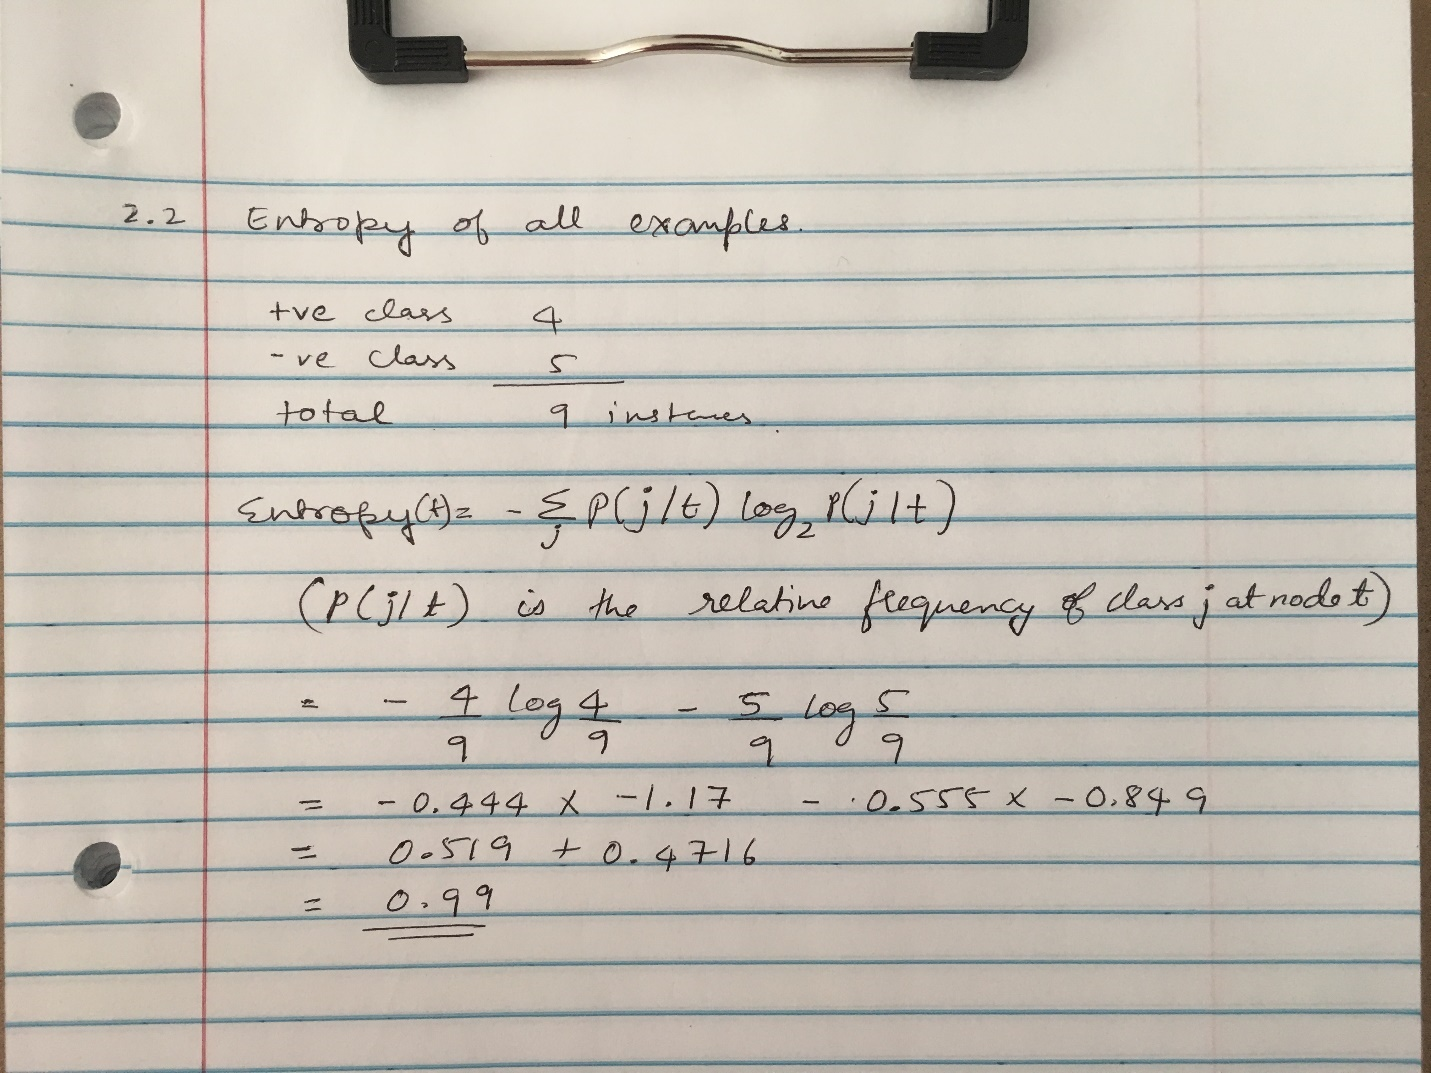 2.2 Entropy of all examples.
+ve class 4
-ve class 5
total 9 instances.
Entropy(t) = - Σ_j P(j/t) log₂ P(j|t)
(P(j|t) is the relative frequency of class j at node t)
= - 4/9 log 4/9 - 5/9 log 5/9
= - 0.444 x -1.17 - 0.555 x -0.849
= 0.519 + 0.4716
= 0.99